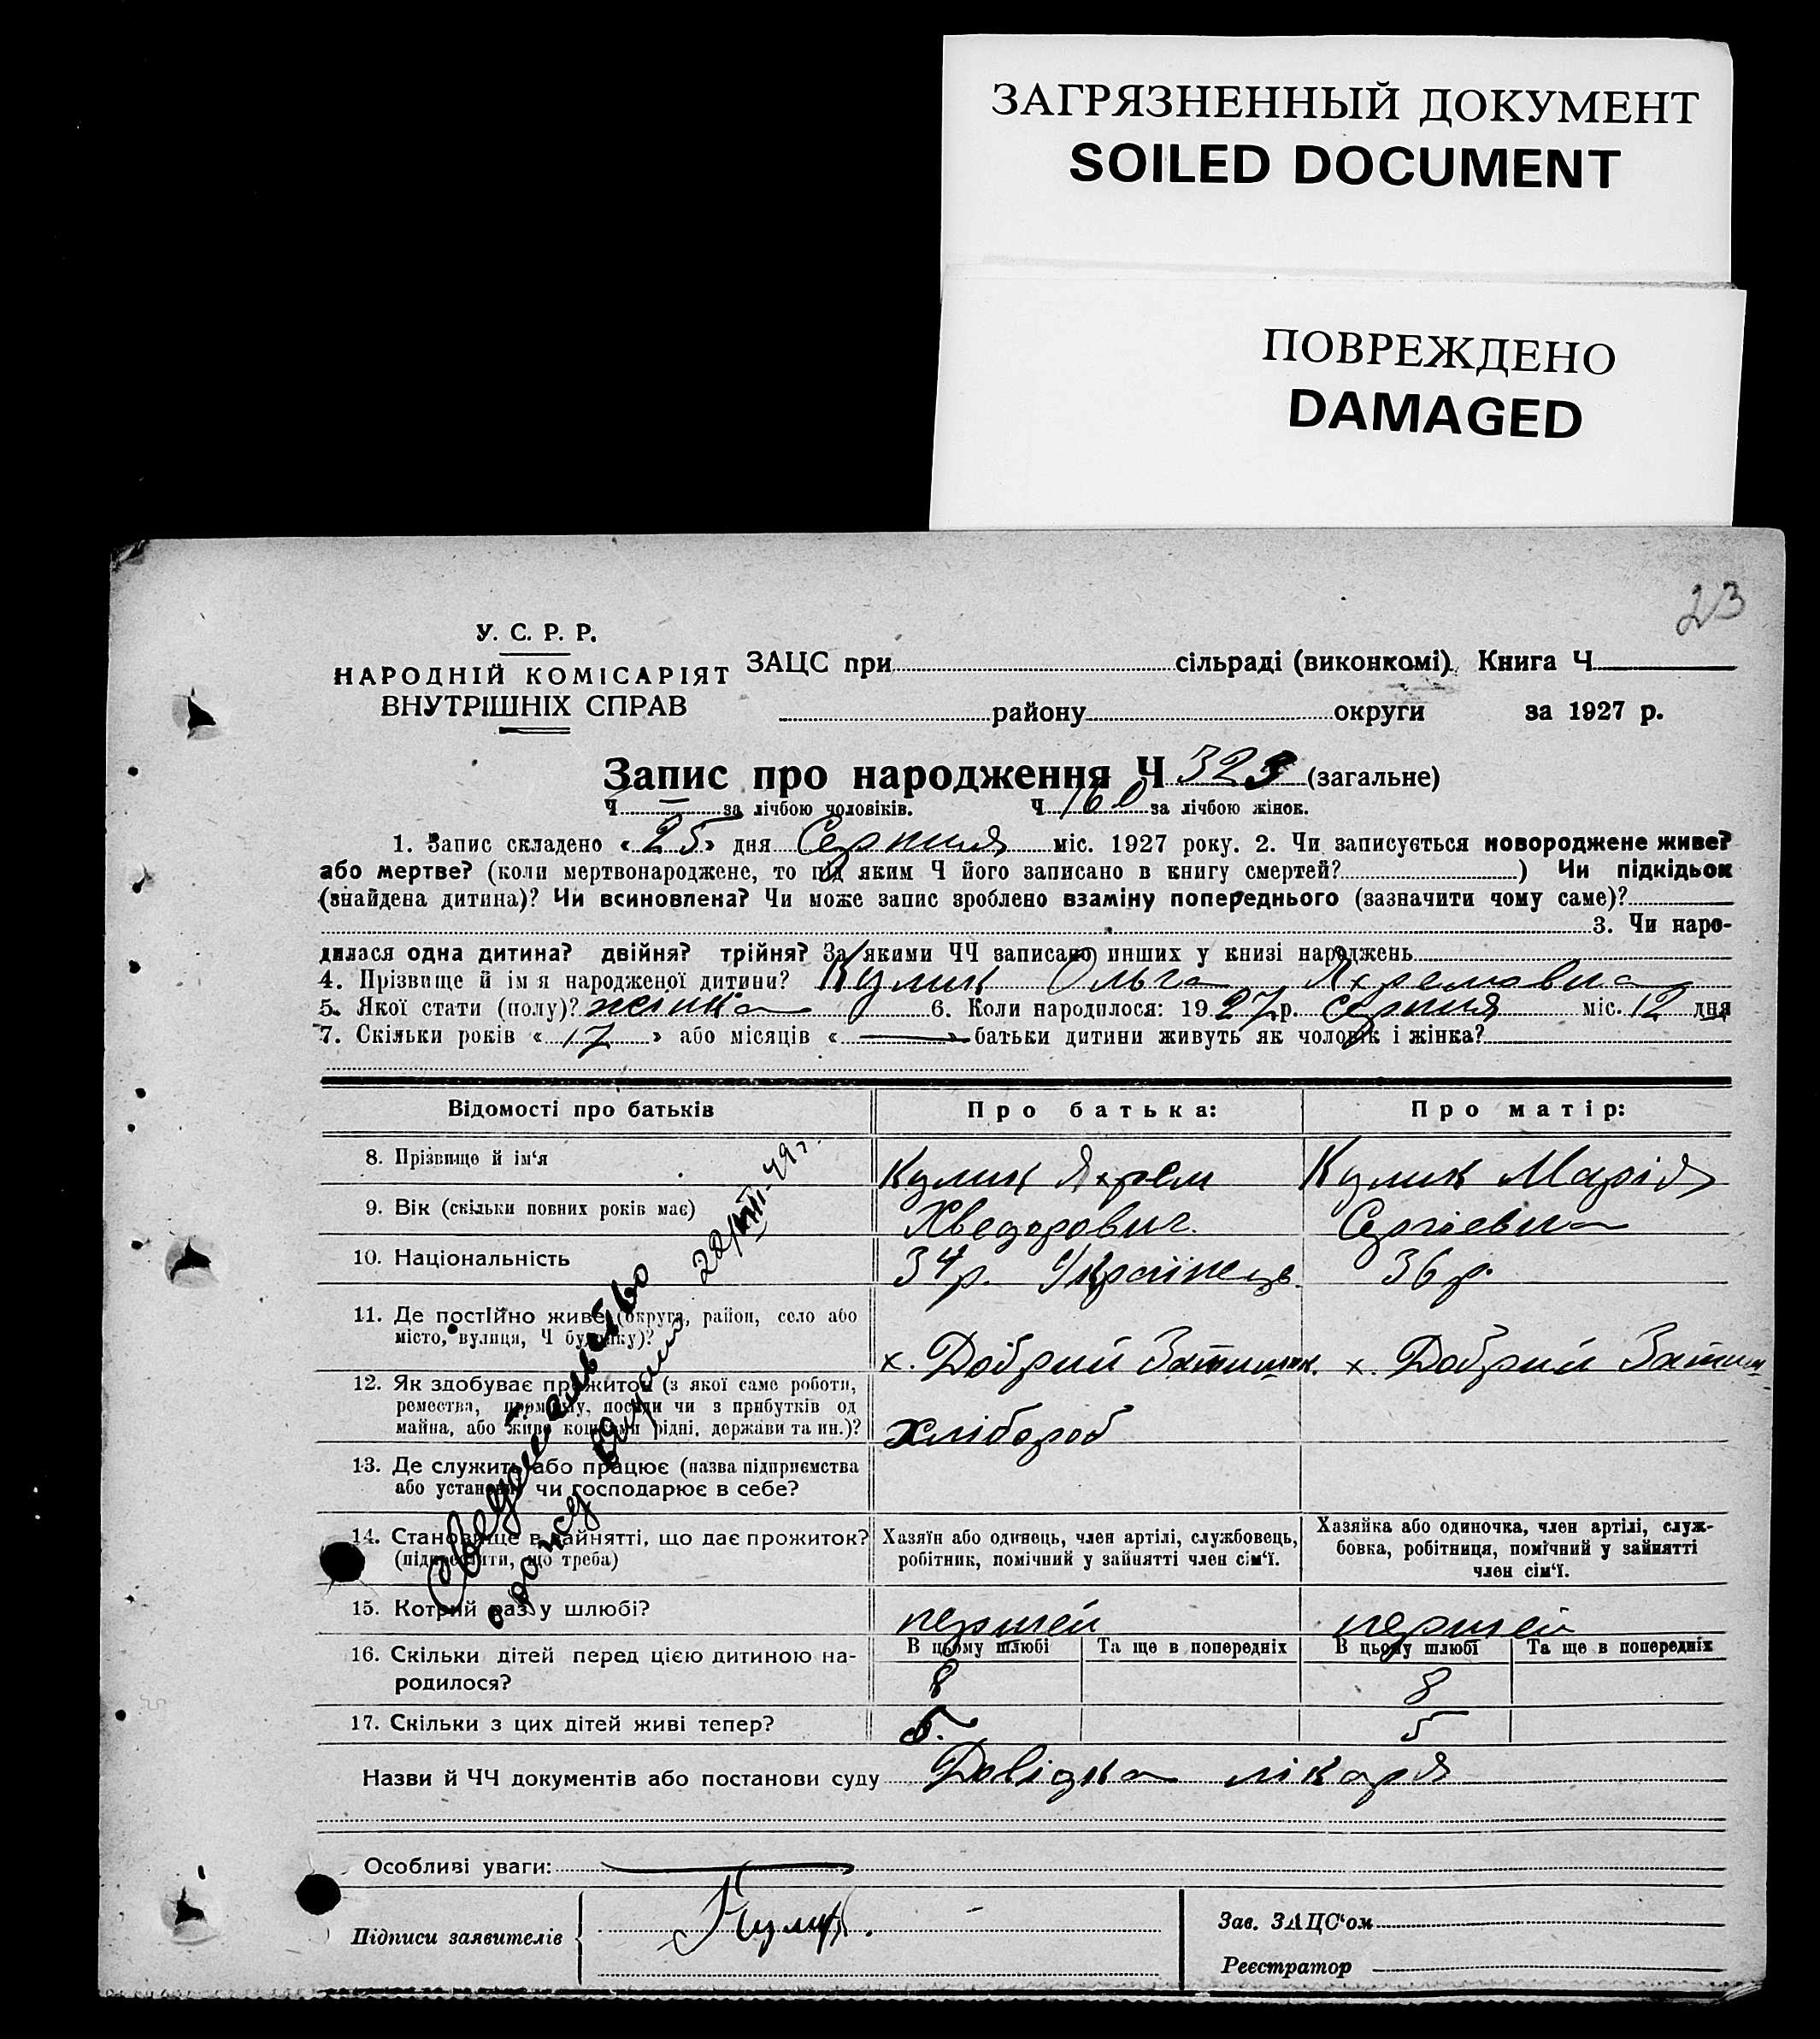 ЗАГРЯЗНЕННЫЙ ДОКУМЕНТ
SOILED DOCUMENT
ПОВРЕЖДЕНО
DAMAGED
23
У. С. Р. Р.
НАРОДНІЙ КОМІСАРІЯТ
ВНУТРІШНІХ СПРАВ
ЗАЦС при сільраді (виконкомі). Книга Ч.
району округи за 1927 р.
Запис про народження Ч 323 (загальне)
Ч — за лічбою чоловіків. Ч 160 за лічбою жінок.
1. Запис складено « 25 » дня Серпня міс. 1927 року. 2. Чи записується новороджене живе?
або мертве? (коли мертвонароджене, то під яким Ч його записано в книгу смертей? ) Чи підкідьок
(знайдена дитина)? Чи всиновлена? Чи може запис зроблено взаміну попереднього (зазначити чому саме)?
3. Чи наро-
дилася одна дитина? двійня? трійня? За якими ЧЧ записано инших у книзі народжень
4. Прізвище й ім я народженої дитини? Кулик Ольга Яхремовна
5. Якої стати (полу)? жінка 6. Коли народилося: 1927 р. серпня міс. 12 дня
7. Скільки років « 17 » або місяців « — » батьки дитини живуть як чоловік і жінка?
Відомості про батьків Про батька: Про матір:
8. Прізвище й ім‘я Кулик Яхрем Кулик Марія
9. Вік (скільки повних років має) Хведорович. Сергіевна
10. Національність 34 р. Українець. 36 р.
11. Де постійно живе (округа, район, село або
місто, вулиця, Ч будинку)?
х. Добрий Затишок. х. Добрий Затиш
12. Як здобуває прожиток (з якої саме роботи,
ремества, промислу, посади чи з прибутків од
майна, або живе коштами рідні, держави та ин.)? Хлібороб
13. Де служить або працює (назва підприємства
або установи) чи господарює в себе?
14. Становище в зайнятті, що дає прожиток?
(підкреслити, що треба)
Хазяїн або одинець, член артілі, службовець,
робітник, помічний у зайнятті член сім‘ї.
Хазяйка або одиночка, член артілі, служ-
бовка, робітниця, помічний у зайнятті
член сім‘ї.
15. Котрий раз у шлюбі? першей першей
В цьому шлюбі Та ще в попередніх В цьому шлюбі Та ще в попередніх
16. Скільки дітей перед цією дитиною на-
родилося? 8 8
17. Скільки з цих дітей живі тепер? 5. 5
Свидетельство
22/VIII-49 г.
Назви й ЧЧ документів або постанови суду Довідка лікаря
Особливі уваги: —
Підписи заявителів Кулик.
Зав. ЗАЦС‘ом
Реєстратор